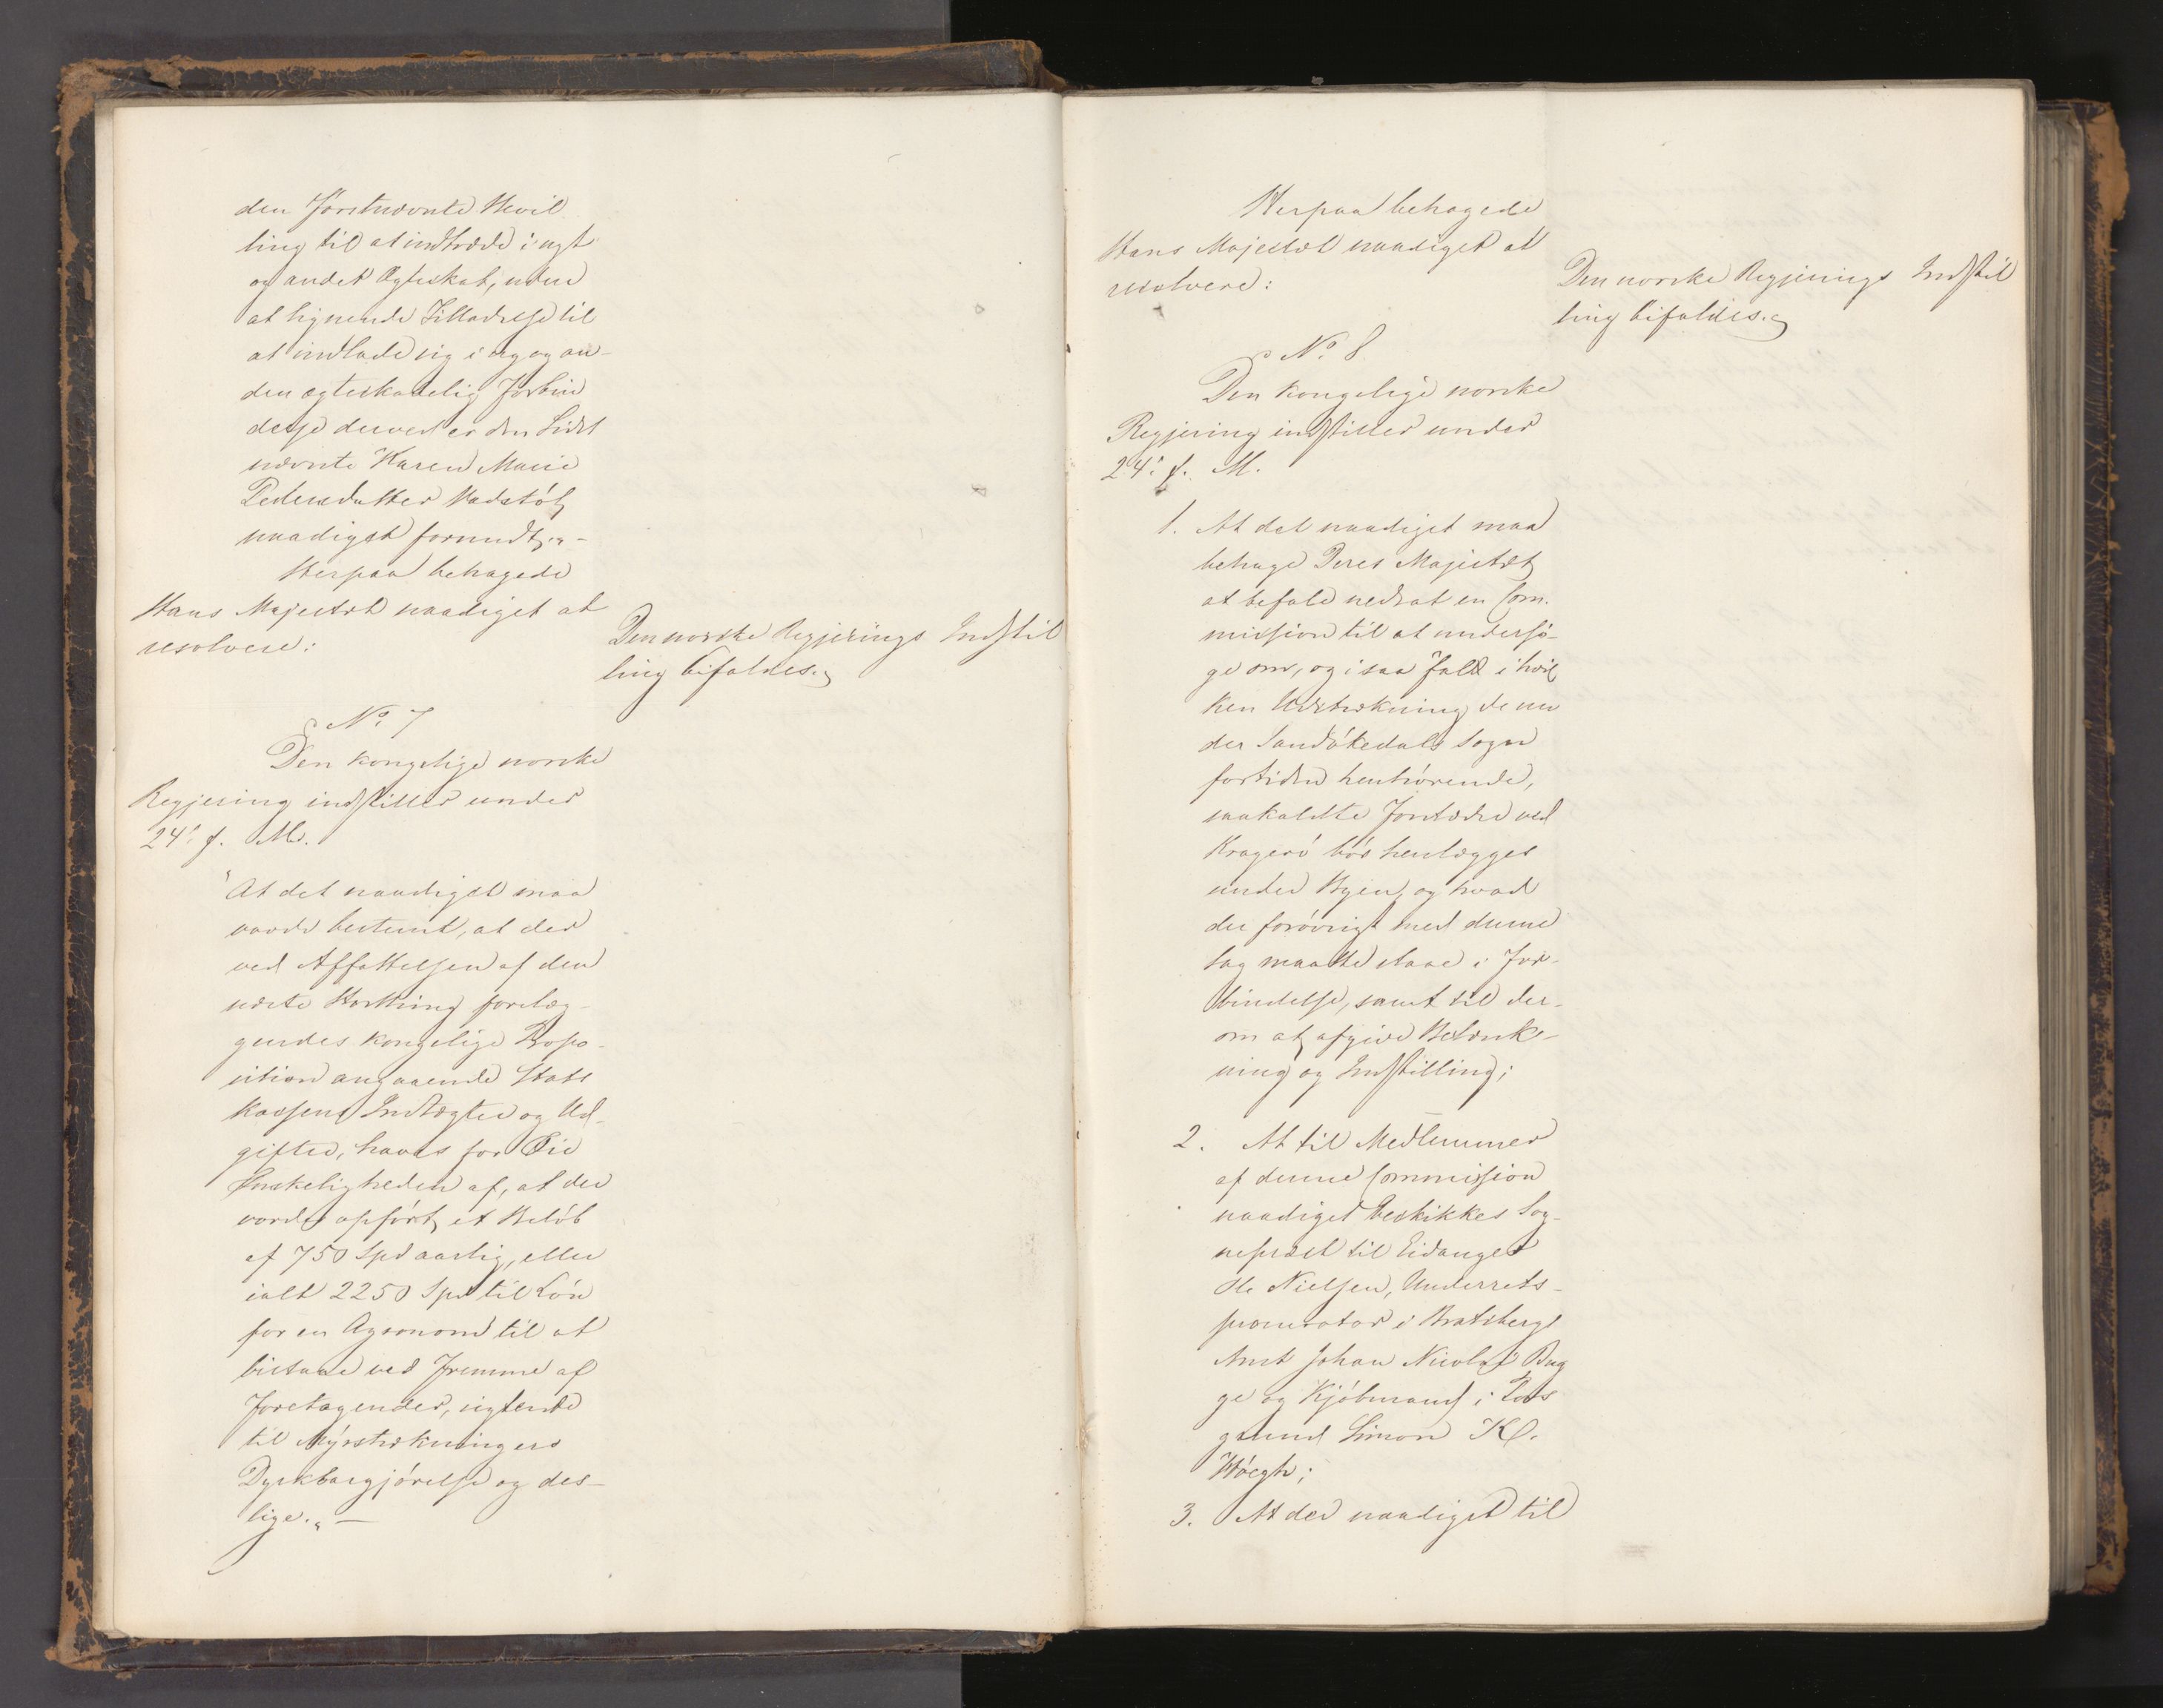 den Førstnævnte Bevil
ling til at indtræde i nyt
og andet Ægteskab, uden
at lignende Tilladelse til
at indlade sig i ny og an-
den ægteskabelig Forbin
delse derved er den Sidst
nævnte Karen Marie
Pedersdatter
naadigst forundt„-
Herpaa behagede
Hans Majestæt naadigst at
resolvere:
Den norske Regjerings Indstil
ling bifaldes.
No. 7
Den kongelige norske
Regjering indstiller under
24. f. M.
"At det naadigst maa
vorde bestemt, at der
ved Affattelsen af den
næste Storthing forelæg-
gendes kongelige Propo-
sition angaaende Stats
kassens Indtægter og Ud-
gifter, haves for Øie
Ønskeligheden af, at der
vorder opført et Beløb
af 750 Spd aarlig, eller
ialt 2250 Spd til Løn
for en Agronom til at
bistaae ved Fremme af
Foretagender, sigtende
til Myrstrækningers
Dyrkbargjørelse og des-
lige.„ —
Herpaa behagede
Hans Majestæt naadigst at
resolvere:
Den norske Regjerings Indstil
ling bifaldes.
No. 8
Den kongelige norske
Regjering indstiller under
24. f. M.
1. At det naadigst maa
behage Deres Majestæt
at befale nedsat en Com-
mission til at undersø-
ge om, og i saa Fald i hvil
ken Udstrækning de un
der Sandøkedals Sogn
fortiden henhørende,
saakaldte Forstæder ved
Kragerø bør henlægges
under Byen, og hvad
der forøvrigt med denne
Sag maatte staae i For-
bindelse, samt til der-
om at afgive Betænk-
ning og Indstilling;
2. At til Medlemmer
af denne Commission
naadigst beskikkes Sog-
nepræst til Eidanger
Ole Nielsen, Underrets-
procurator i Bratsbergs
Amt Johan Nicolai Bug
ge og Kjøbmand i Pors
grund Simon Kl.
Høegh;
3. At der naadigst til